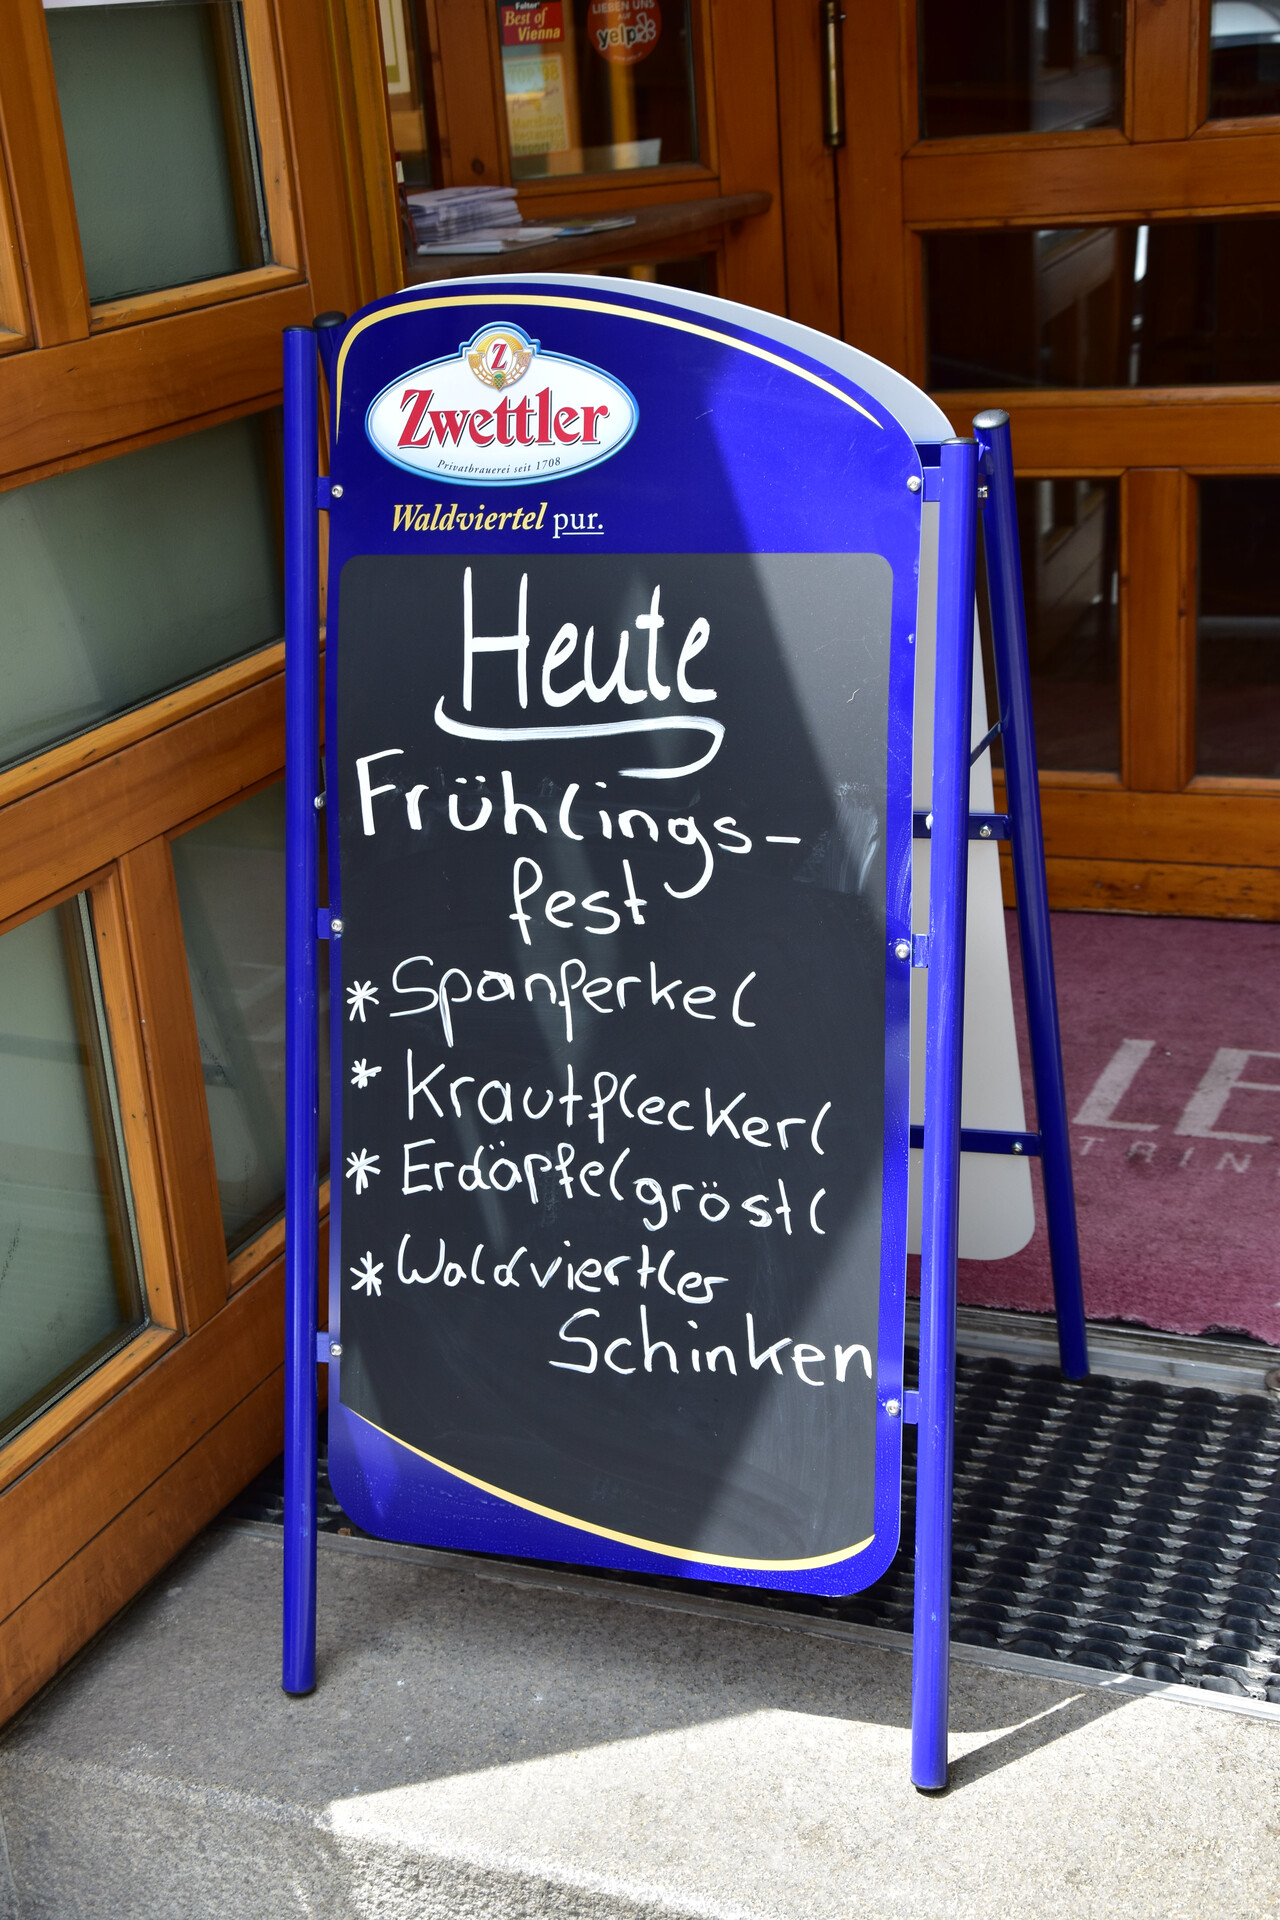 Falter'
Best of
Vienna
LIEBEN UNS
AUF
yelp
Z
Zwettler
Privatbrauerei seit 1708
Waldviertel pur.
Heute
Frühlings-
fest
* Spanferkel
* Krautfleckerl
* Erdäpfelgröstl
* Waldviertler
Schinken
LE
TRIN